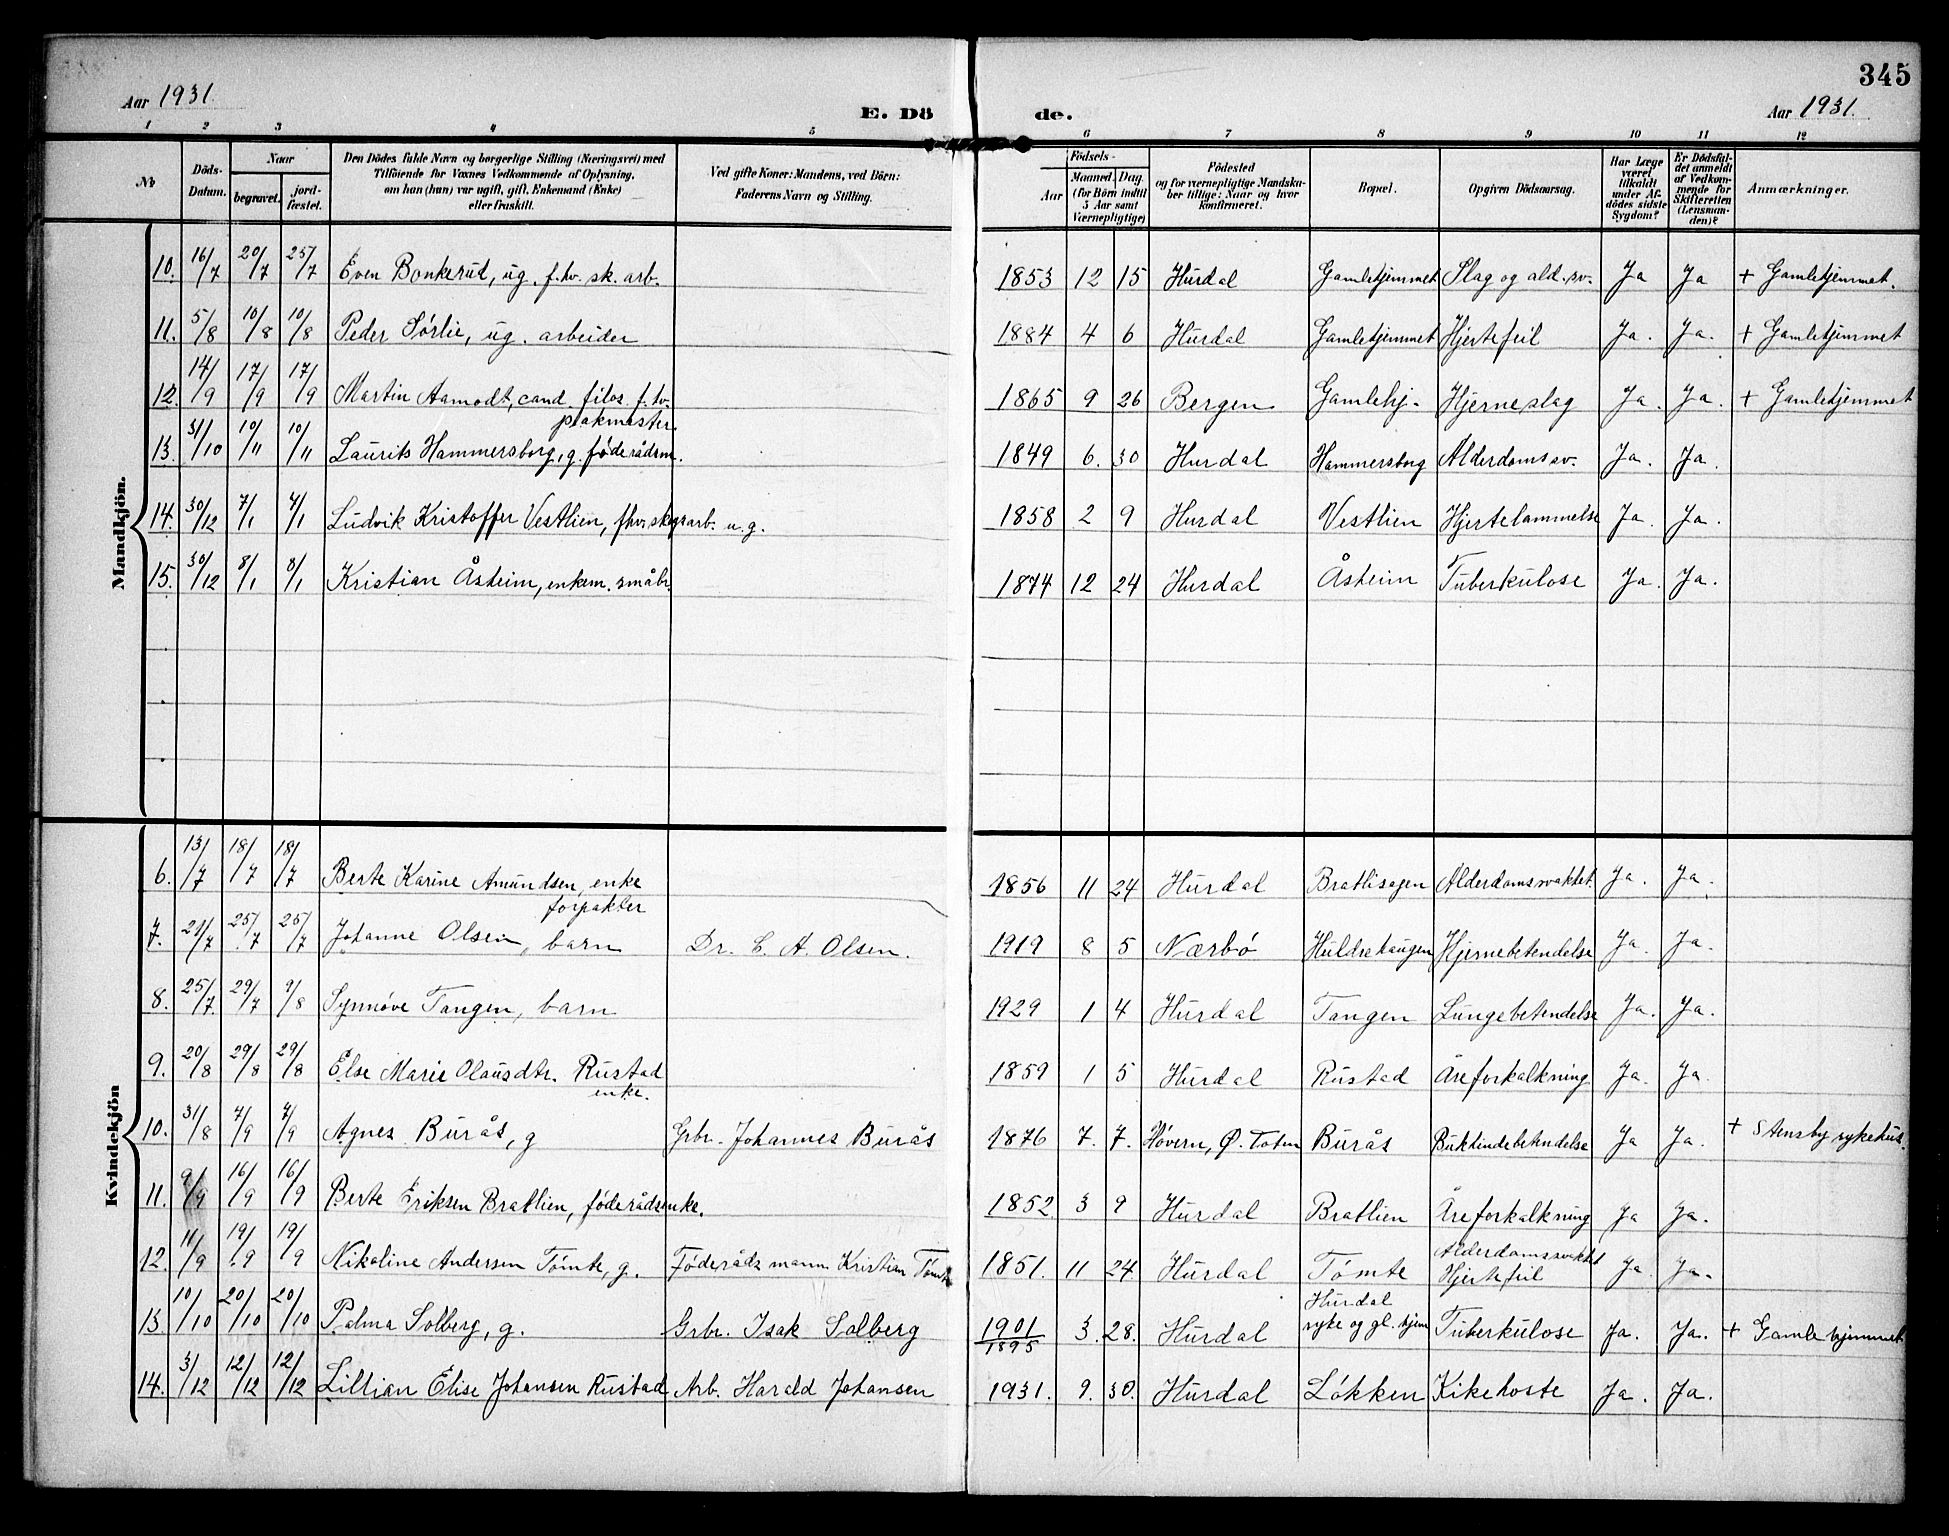 345
Aar 1931. E. Dö de. Aar 1931.
1 2 3 4 5 6 7 8 9 10 11 12
No
Döds-Datum.
Naar
begravet.
jord-fæstet.
Den Dödes fulde Navn og borgerlige Stilling (Næringsvei) med
Tilföiende for Voxnes Vedkommende af Oplysning,
om han (hun) var ugift, gift, Enkemand (Enke)
eller fraskilt.
Ved gifte Koner: Mandens, ved Börn:
Faderens Navn og Stilling.
Födsels-
Aar
Maaned. Dag.
(for Börn indtil
5 Aar samt
Værnepligtige)
Födested
og for værnepligtige Mandska-
ber tillige: Naar og hvor
konfirmeret.
Bopæl.
Opgiven Dödsaarsag.
Har Læge
været
tilkaldt
under Af-
dödes sidste
Sygdom?
Er Dödsfal-
det anmeldt
af Vedkom-
mende for
Skifteretten
(Lensman-
den)?
Anmærkninger.
Mandkjön.
10. 16/7 20/7 25/7 Even Bonkerud, ug. f.hv. sk. arb. 1853 12 15 Hurdal Gamlehjemmet Slag og ald.sv. Ja Ja + Gamlehjemmet.
11. 5/8 10/8 10/8 Peder Sørlie, ug. arbeider 1884 4 6 Hurdal Gamlehjemmet Hjertefeil Ja. Ja. + Gamlehjemmet
12. 14/9 17/9 17/9 Martin Aamodt, cand. filos. f. hv. 1865 9 26 Bergen Gamlehj. Hjerneslag Ja. Ja. + Gamlehjemmet
pakmester.
13. 31/10 10/11 10/11 Laurits Hammersborg, g. føderådsm. 1849 6. 30 Hurdal Hammersborg Alderdomssv. Ja. Ja.
14. 30/12 7/1 7/1 Ludvik Kristoffer Vestlien, fhv. skogsarb. u. g. 1858 2 9 Hurdal Vestlien Hjertelammelse Ja. Ja.
15. 30/12 8/1 8/1 Kristian Åsheim, enkem. småbr. 1874 12 24 Hurdal Åsheim Tuberkulose Ja. Ja.
Kvindekjön
6. 13/7 18/7 18/7 Berte Karine Amundsen, enke 1856 11 24 Hurdal Bratlisagen Alderdomssvakhet. Ja. Ja.
forpakter
7. 21/7 25/7 25/7 Johanne Olsen, barn Dr. C. A. Olsen. 1919 8 5 Nærbø Huldrehaugen Hjernebetendelse Ja. Ja.
8. 25/7 29/7 9/8 Synnøve Tangen, barn 1929 1 4 Hurdal Tangen Lungebetendelse Ja. Ja.
9. 20/8 29/8 29/8 Else Marie Olausdtr. Rustad 1859 1 5 Hurdal Rustad Åreforkalkning Ja. Ja.
enke.
10. 31/8 4/9 4/9 Agnes Burås, g Grbr. Johannes Burås 1876 7. 7. Høvern, Ø. Toten Burås Bukhindebetendelse Ja Ja. + Stensby sykehus.
11. 9/9 16/9 16/9 Berte Eriksen Bratlien, føderådsenke. 1852. 3 9 Hurdal Bratlien Åreforkalkning Ja Ja.
12. 11/9 19/9 19/9 Nikoline Andersen Tømte, g. Føderådsmann Kristian Tømte 1851. 11 24 Hurdal Tømte Alderdomssvakhet Hjertefeil Ja. Ja.
13. 10/10 20/10 20/10 Palma Solberg, g. Grbr. Isak Solberg 1901/1895 3. 28. Hurdal Hurdal syke og gl. hjem Tuberkulose Ja. Ja. + Gamlehjemmet
14. 3/12 12/12 12/12 Lillian Elise Johansen Rustad Arb. Harald Johansen 1931. 9. 30. Hurdal Løkken Kikehoste Ja. Ja.